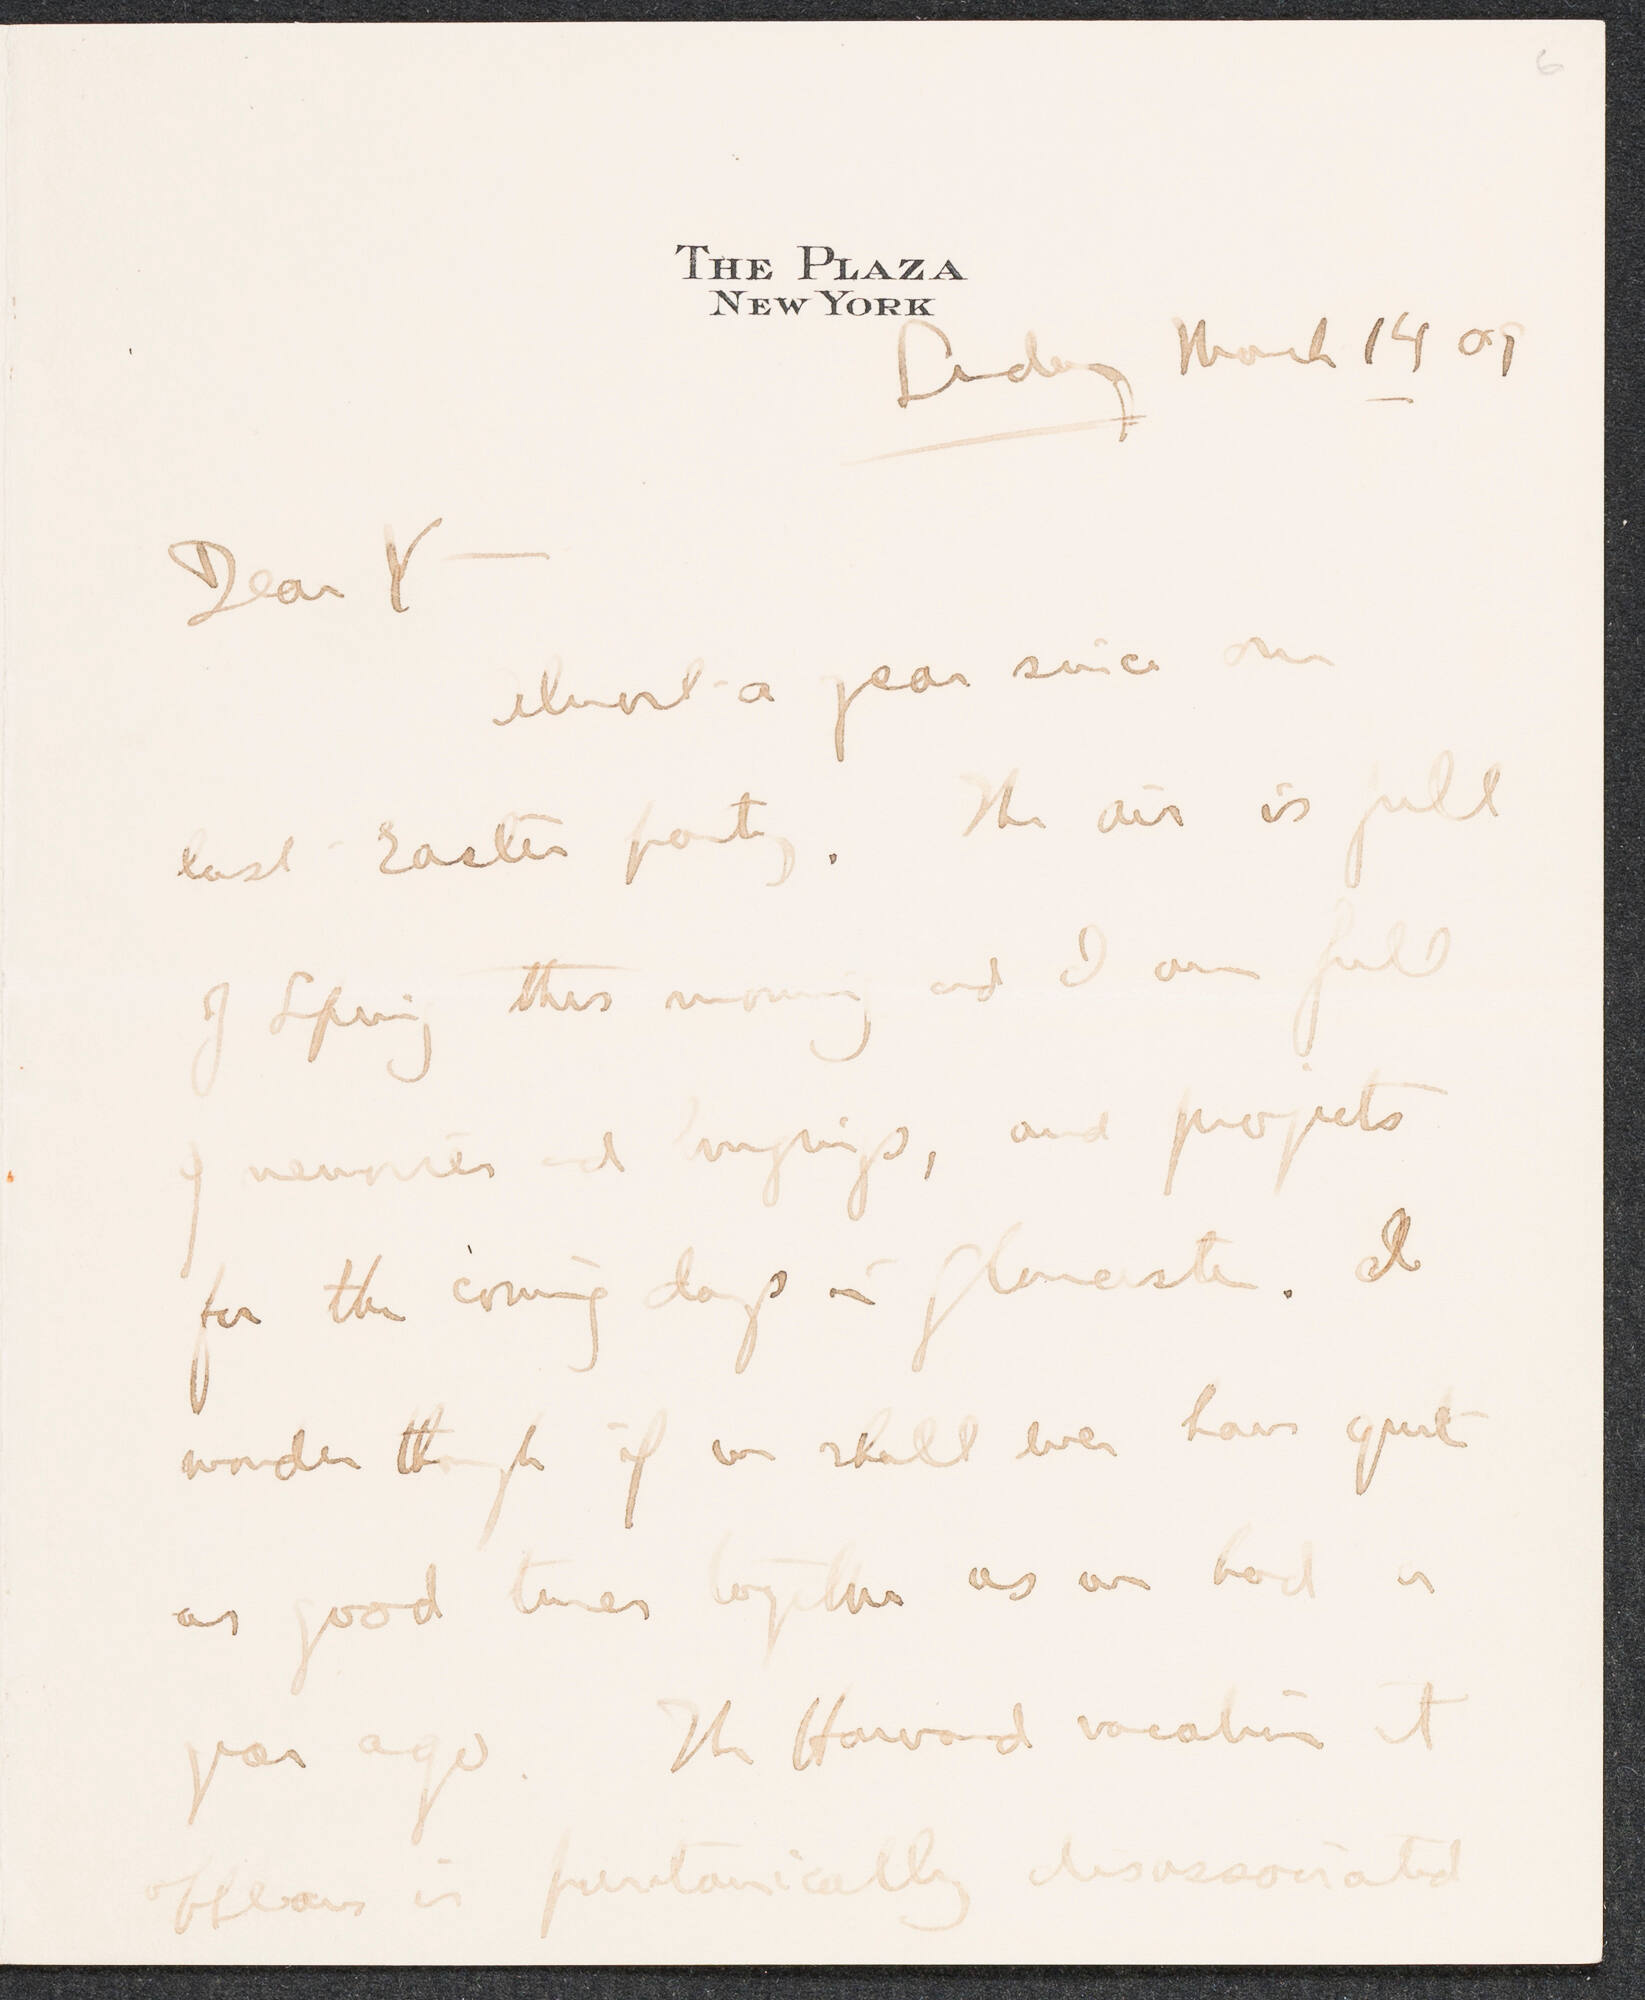 6
THE PLAZA
NEW YORK
Sunday March 14 09
Dear Y —
Almost a year since our
last Easter party. The air is full
of Spring this morning and I am full
of memories and longings, and projects
for the coming days in Gloucester. I
wonder though if we shall ever have quite
as good times together as we had a
year ago. The Harvard vacation it
appears is puritanically disassociated